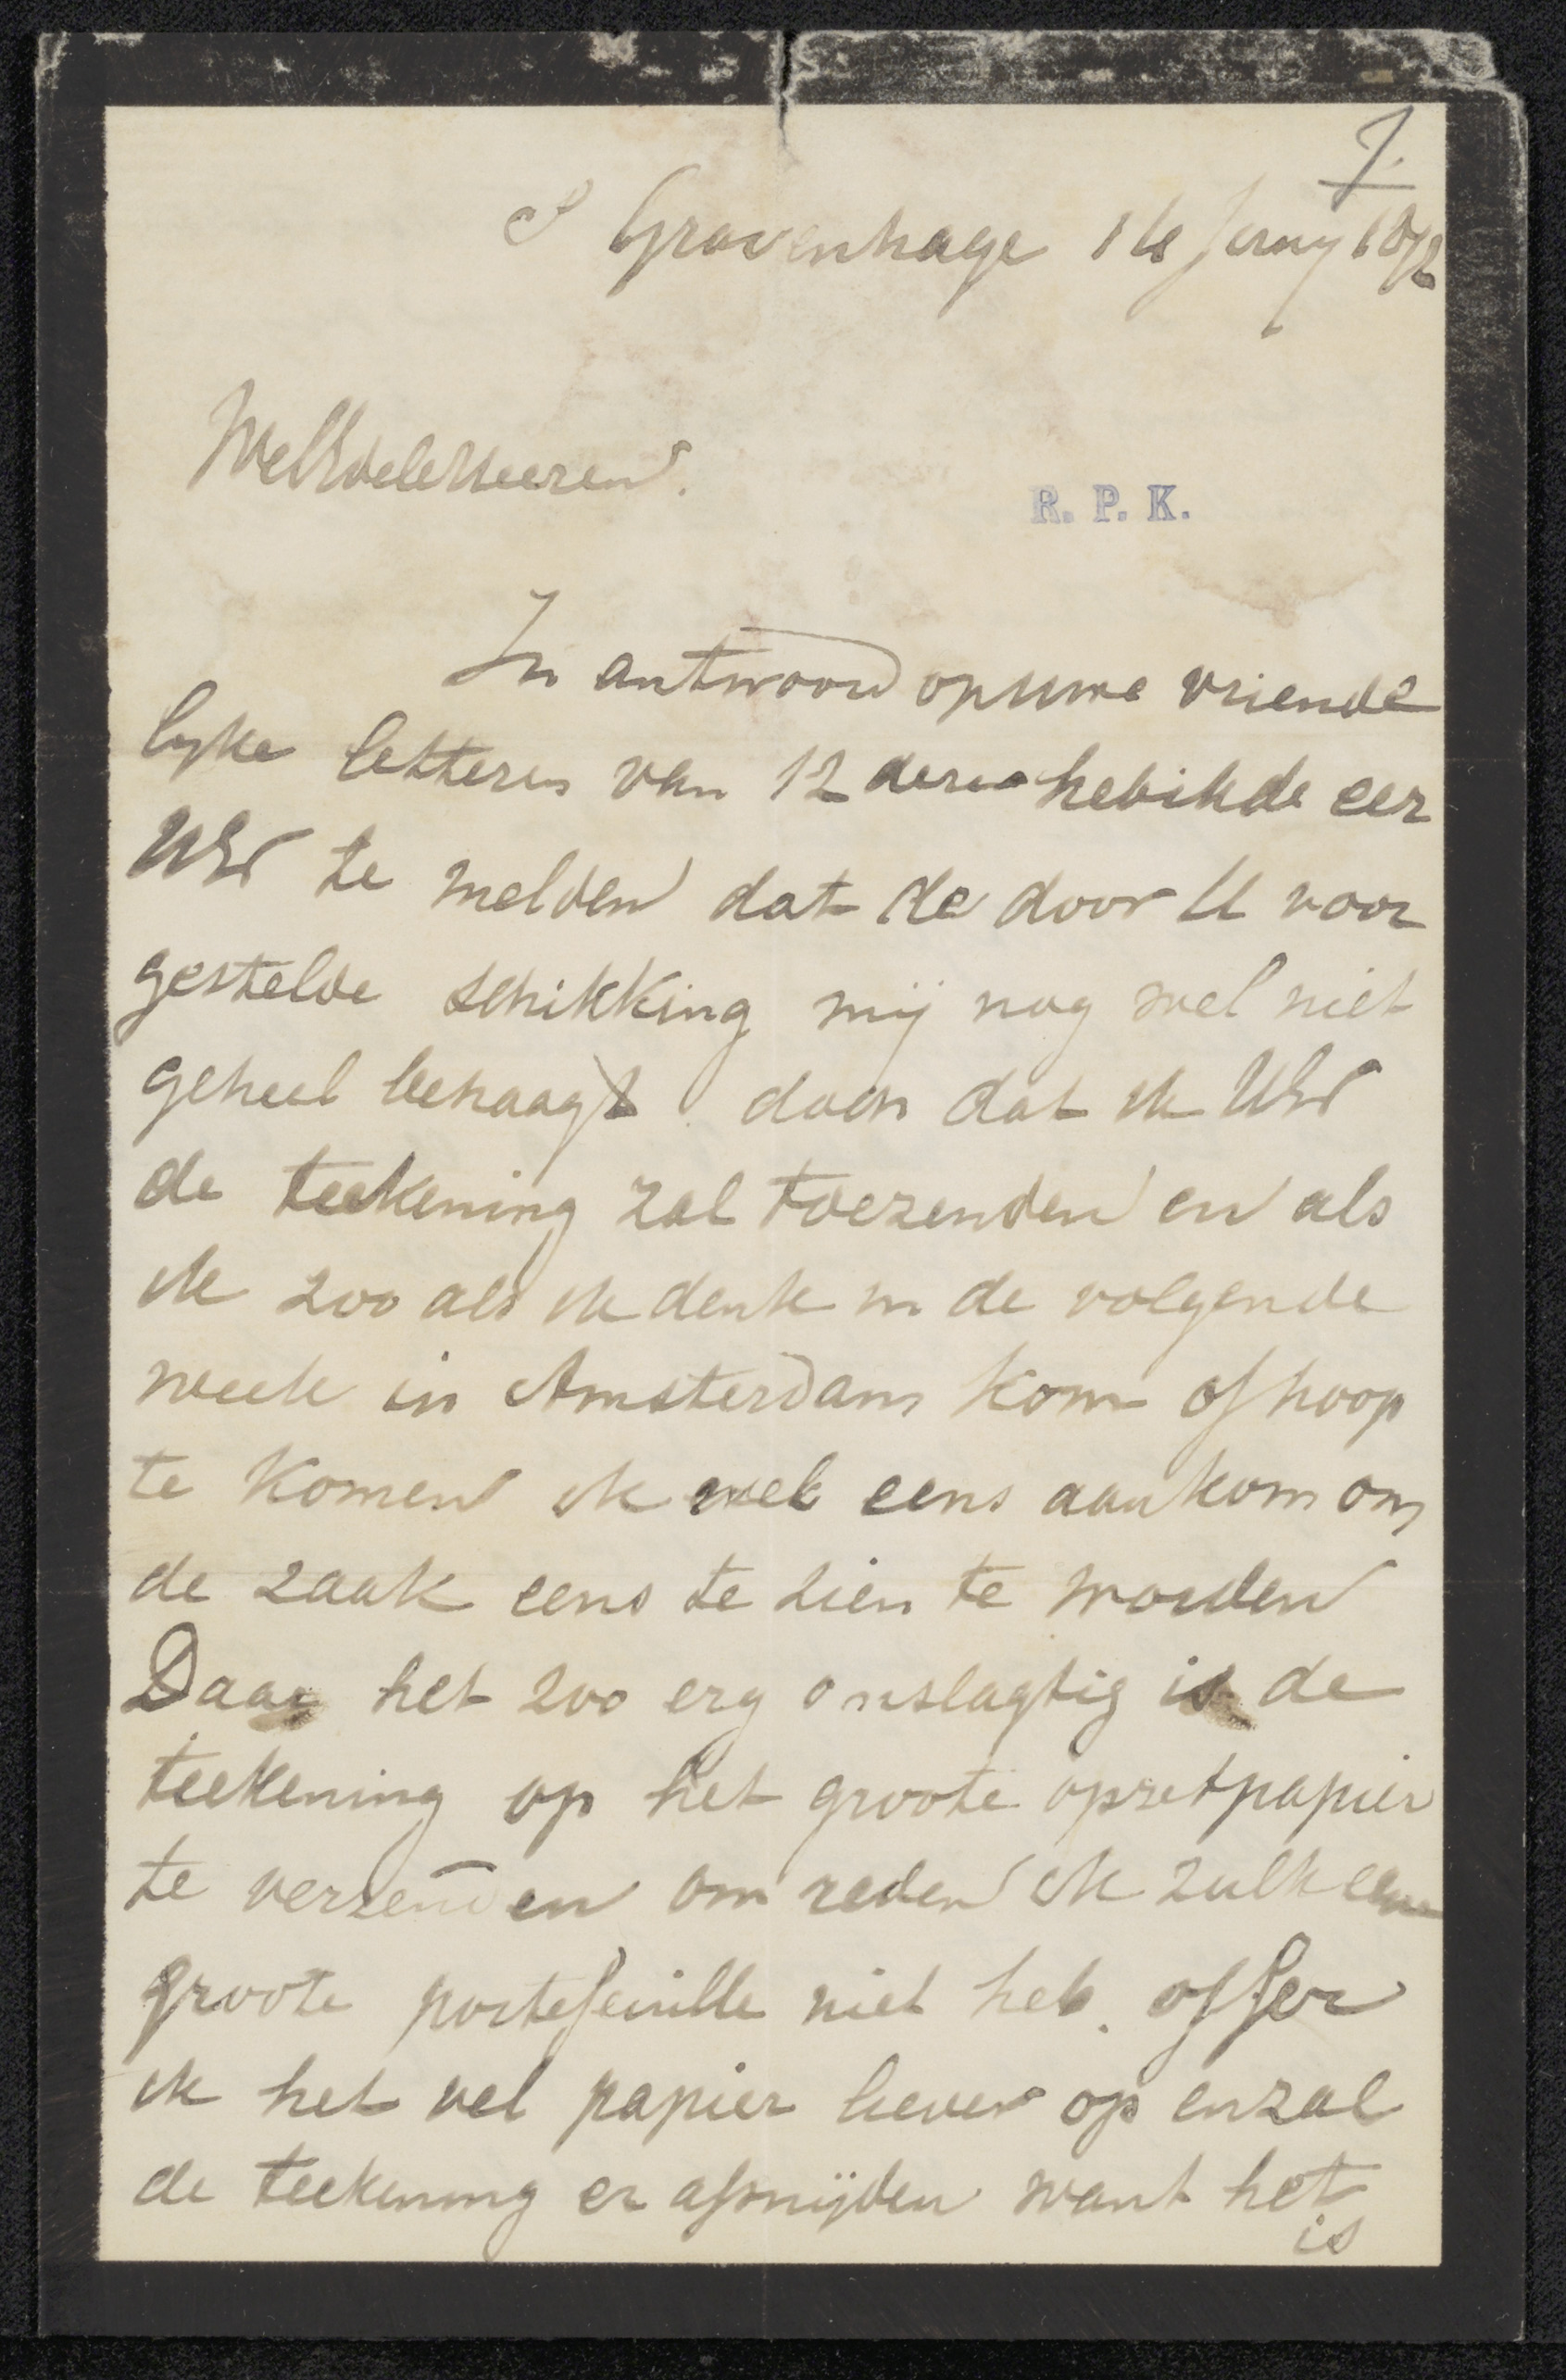 J.
S Gravenhage 16 January 1872
WelEdeleHeeren.
R. P. K.
In antwoord op uwe vriende
lyke letteren van 12 deres heb ik de eer
UEd te melden dat de door U voor
gestelde schikking mij nog wel niet
geheel behaagt. doch dat ik UEd
de teekening zal toezenden en als
ik zoo als ik denk in de volgende
week in Amsterdam kom of hoop
te komen ik wel eens aankom om
de zaak eens te zien te worden
Daar het zoo erg omslagtig is de
teekening op het groote opzetpapier
te verzenden om reden ik zulk eene
groote portefeuille niet heb. offer
ik het vel papier liever op en zal
de teekening er afsnijden want het
is